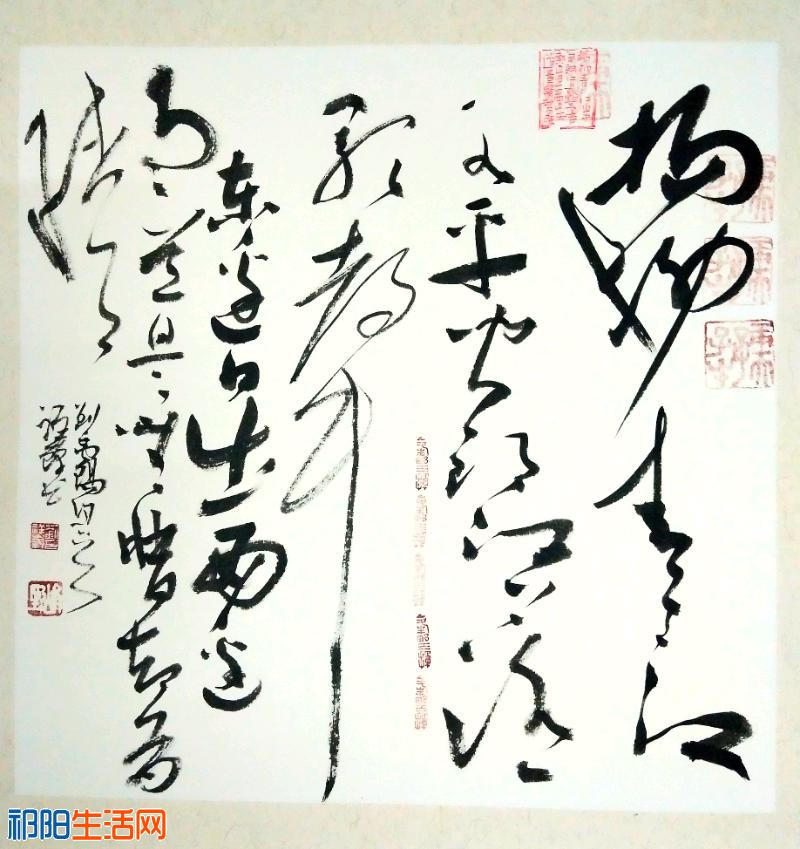 杨柳青青江
水平闻郎江上踏
歌声
东边日出西边
雨道是无晴却有
晴
刘禹锡
祁阳生活网